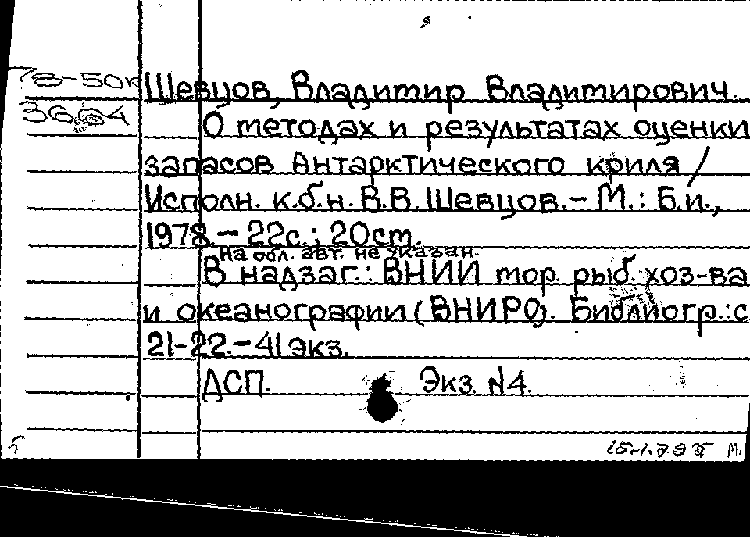 78-50к Шевцов, Владимир Владимирович.
О методах и результатах оценки
запасов Антарктического криля /
Исполн. к.б.н. В.В. Шевцов. – М.: Б.и.,
1978. – 22с.; 20см.
на обл. авт. не указан.
В надзаг.: ВНИИ мор. рыб. хоз-ва
и океанографии (ВНИРО). Библиогр.: с
21-22. – 41 экз.
ДСП. Экз. №4.